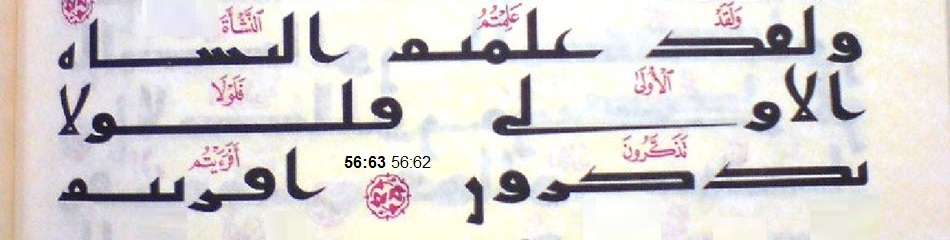 وَلَقَدْ عَلِمْتُمُ ٱلنَّشْأَةَ
ولقد علمتم النشاه
ٱلْأُولَىٰ فَلَوْلَا
الاولى فلولا
تَذَكَّرُونَ أَفَرَءَيْتُم
تذكرون 56:62 56:63 افريتم